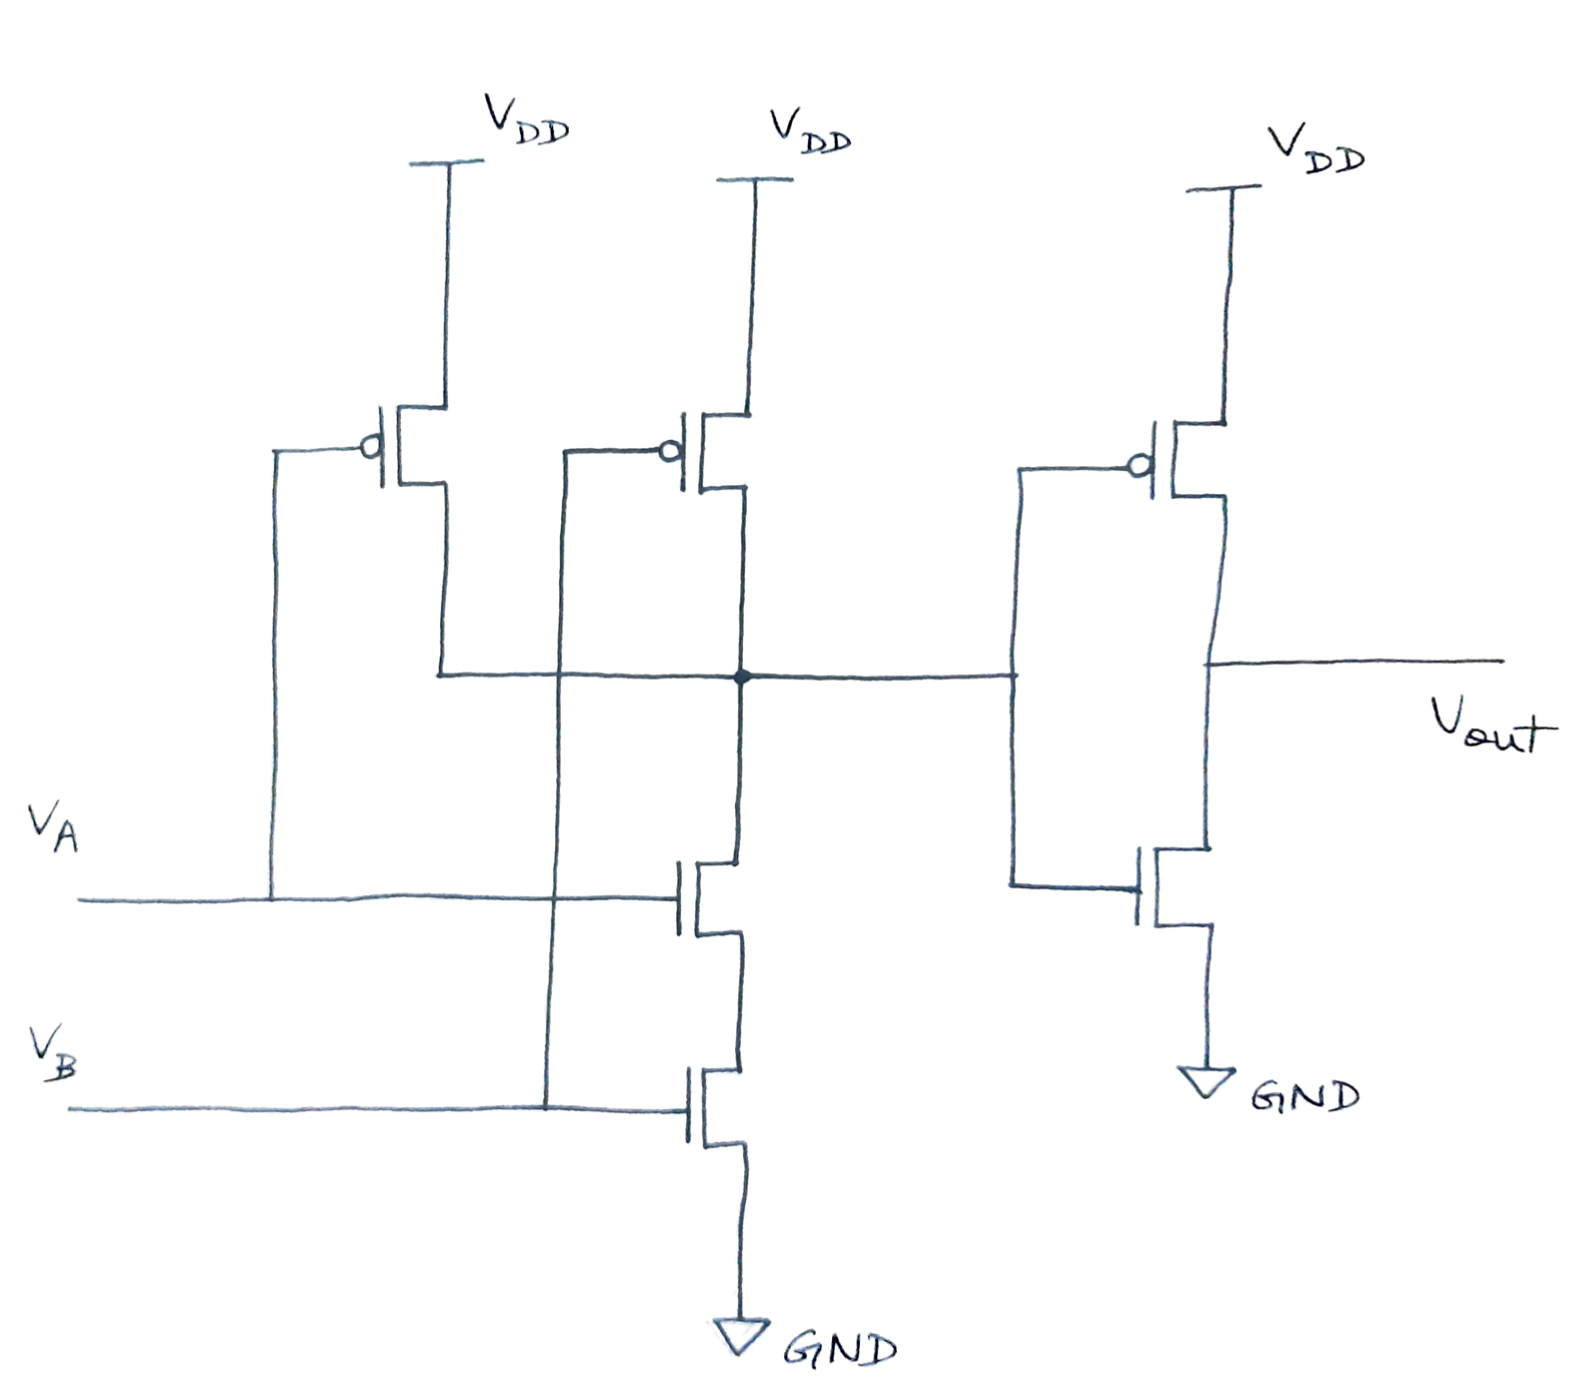 VDD
VDD
VDD
Vout
VA
VB
GND
GND